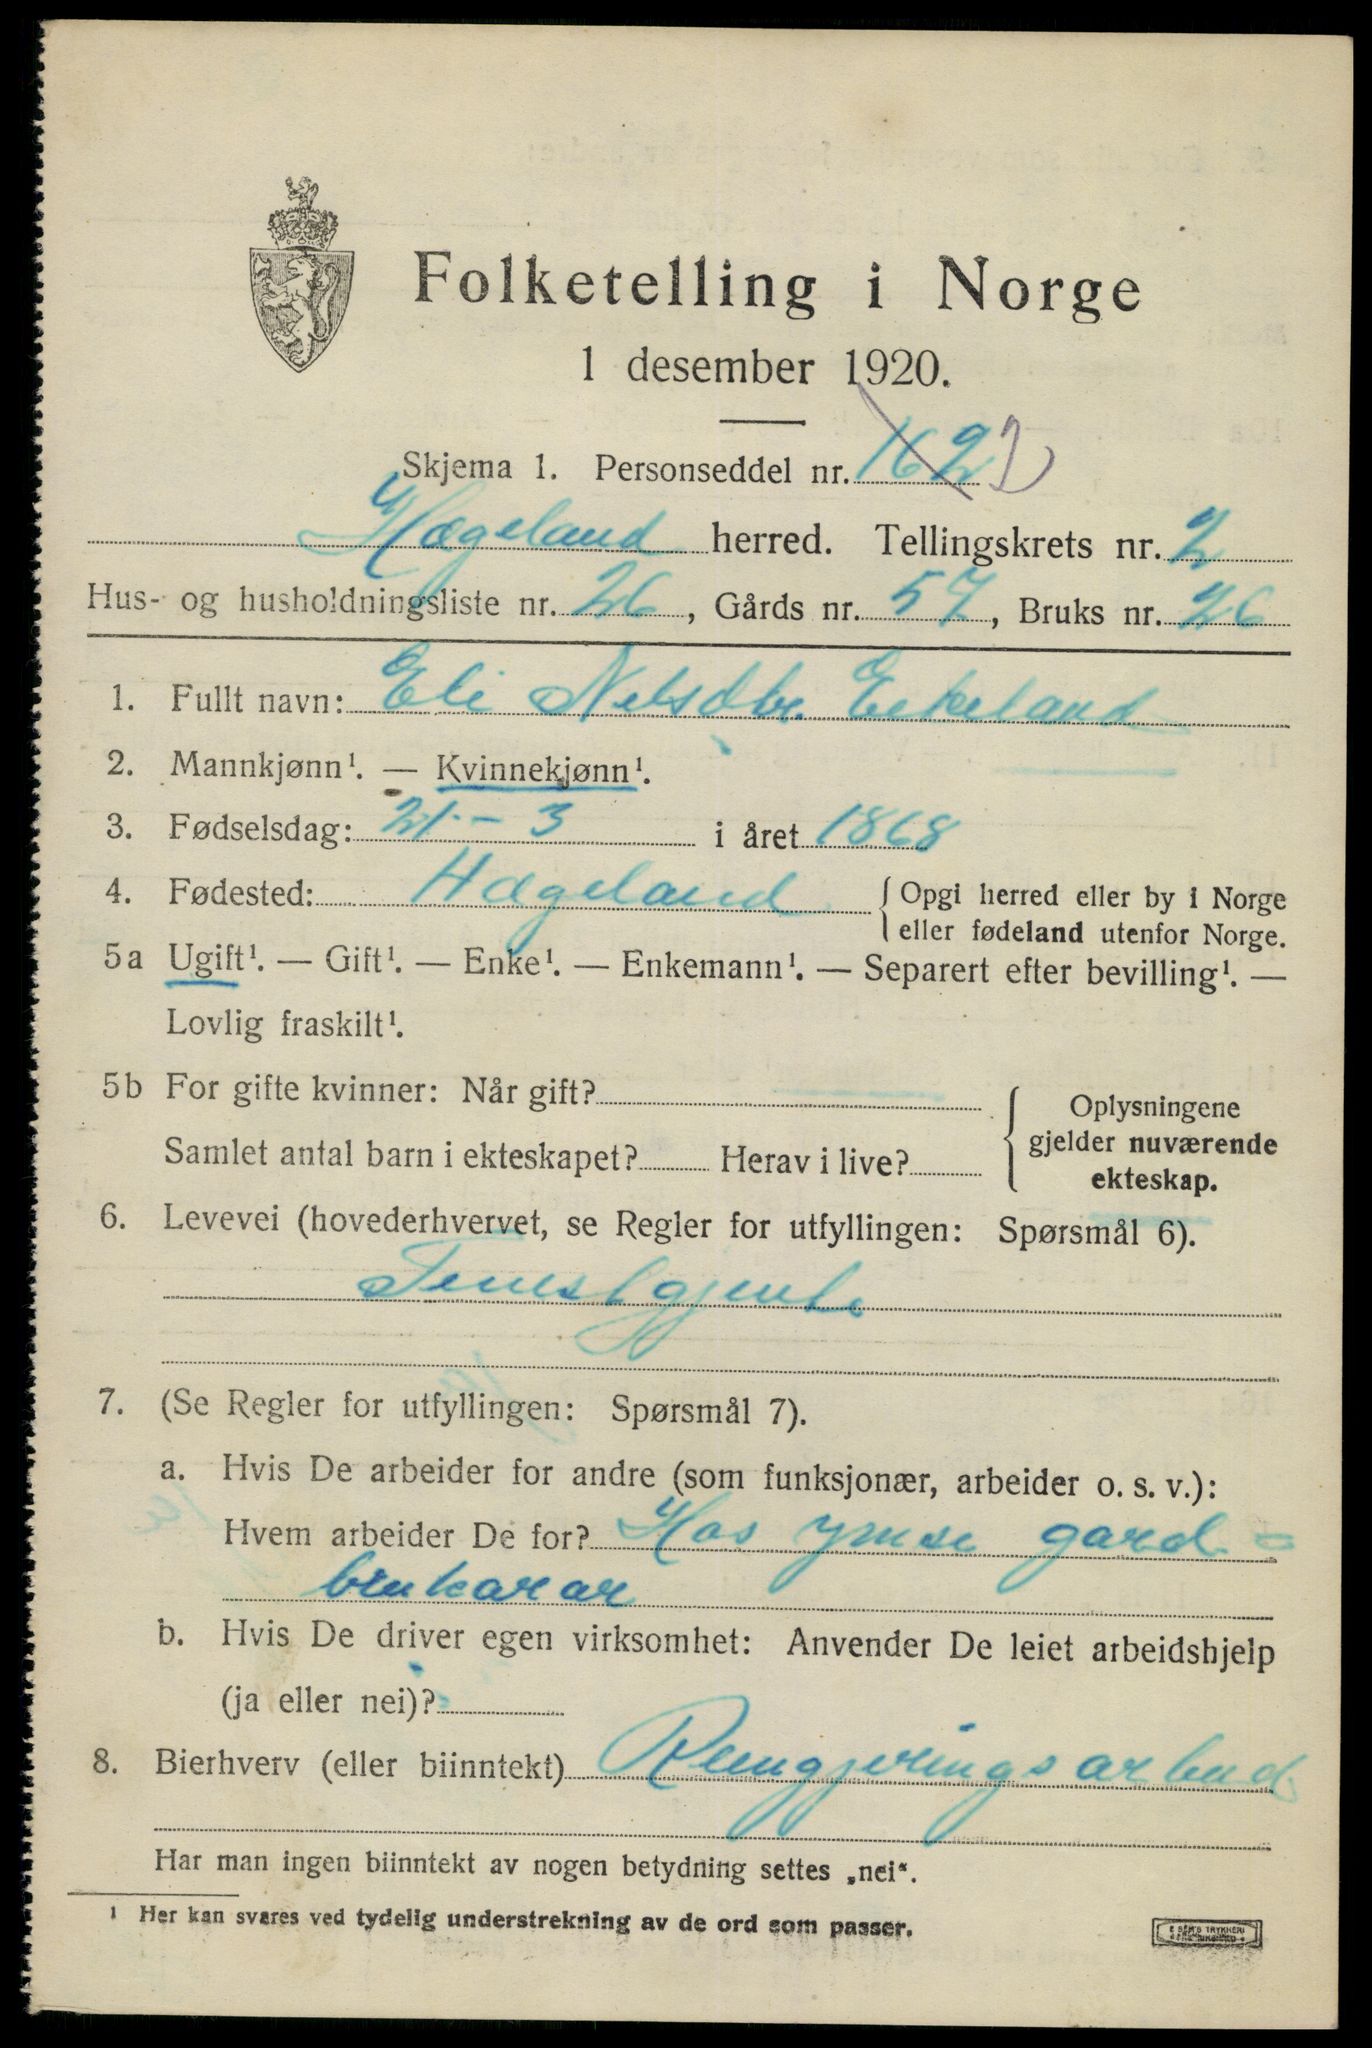 Folketelling i Norge
1 desember 1920.
Skjema 1. Personseddel nr. 162
Hægeland herred. Tellingskrets nr. 2
Hus- og husholdningsliste nr. 26, Gårds nr. 57, Bruks nr. 26
1. Fullt navn: Eli Nelsdtr. Eikeland
2. Mannkjønn¹. — Kvinnekjønn¹.
3. Fødselsdag: 21. - 3 i året 1868
4. Fødested: Hægeland {Opgi herred eller by i Norge
eller fødeland utenfor Norge.
5a Ugift¹. — Gift¹. — Enke¹. — Enkemann¹. — Separert efter bevilling¹. —
Lovlig fraskilt¹.
5b For gifte kvinner: Når gift?
Samlet antal barn i ekteskapet? Herav i live?
Oplysningene
gjelder nuværende
ekteskap.
6. Levevei (hovederhvervet, se Regler for utfyllingen: Spørsmål 6).
Tenestgjente
7. (Se Regler for utfyllingen: Spørsmål 7).
a. Hvis De arbeider for andre (som funksjonær, arbeider o. s. v.):
Hvem arbeider De for? Hos ymse gard=
brukarar
b. Hvis De driver egen virksomhet: Anvender De leiet arbeidshjelp
(ja eller nei)?
8. Bierhverv (eller biinntekt) Reingjeringsarbeid
Har man ingen biinntekt av nogen betydning settes „nei“.
1 Her kan svares ved tydelig understrekning av de ord som passer.